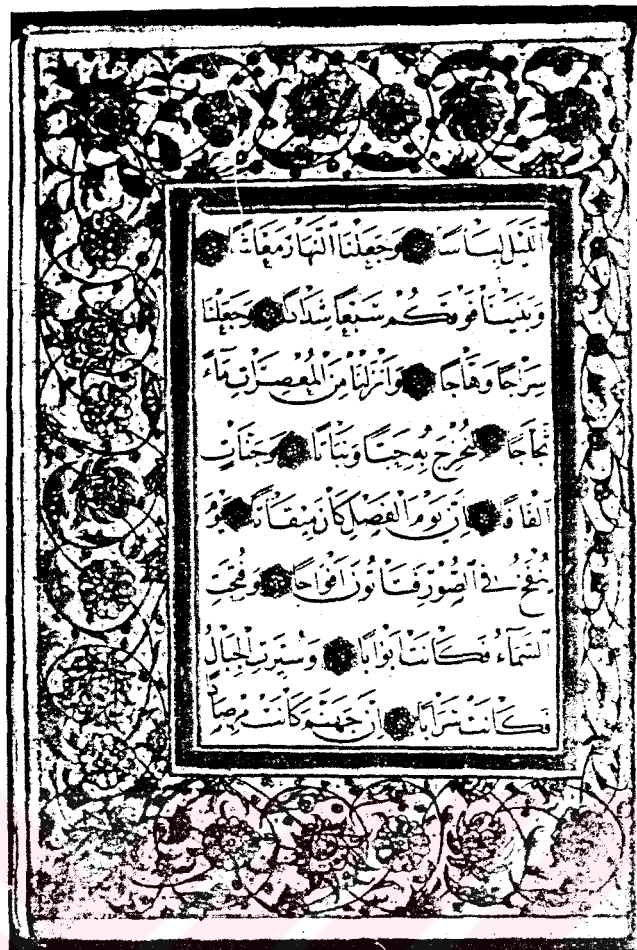 اللَّيْلَ لِبَاسًا وَجَعَلْنَا النَّهَارَ مَعَاشًا
وَبَنَيْنَا فَوْقَكُمْ سَبْعًا شِدَادًا وَجَعَلْنَا
سِرَاجًا وَهَّاجًا وَأَنْزَلْنَا مِنَ الْمُعْصِرَاتِ مَاءً
ثَجَّاجًا لِنُخْرِجَ بِهِ حَبًّا وَنَبَاتًا وَجَنَّاتٍ
أَلْفَافًا إِنَّ يَوْمَ الْفَصْلِ كَانَ مِيقَاتًا يَوْمَ
يُنْفَخُ فِي الصُّورِ فَتَأْتُونَ أَفْوَاجًا وَفُتِحَتِ
السَّمَاءُ فَكَانَتْ أَبْوَابًا وَسُيِّرَتِ الْجِبَالُ
فَكَانَتْ سَرَابًا إِنَّ جَهَنَّمَ كَانَتْ مِرْصَادًا